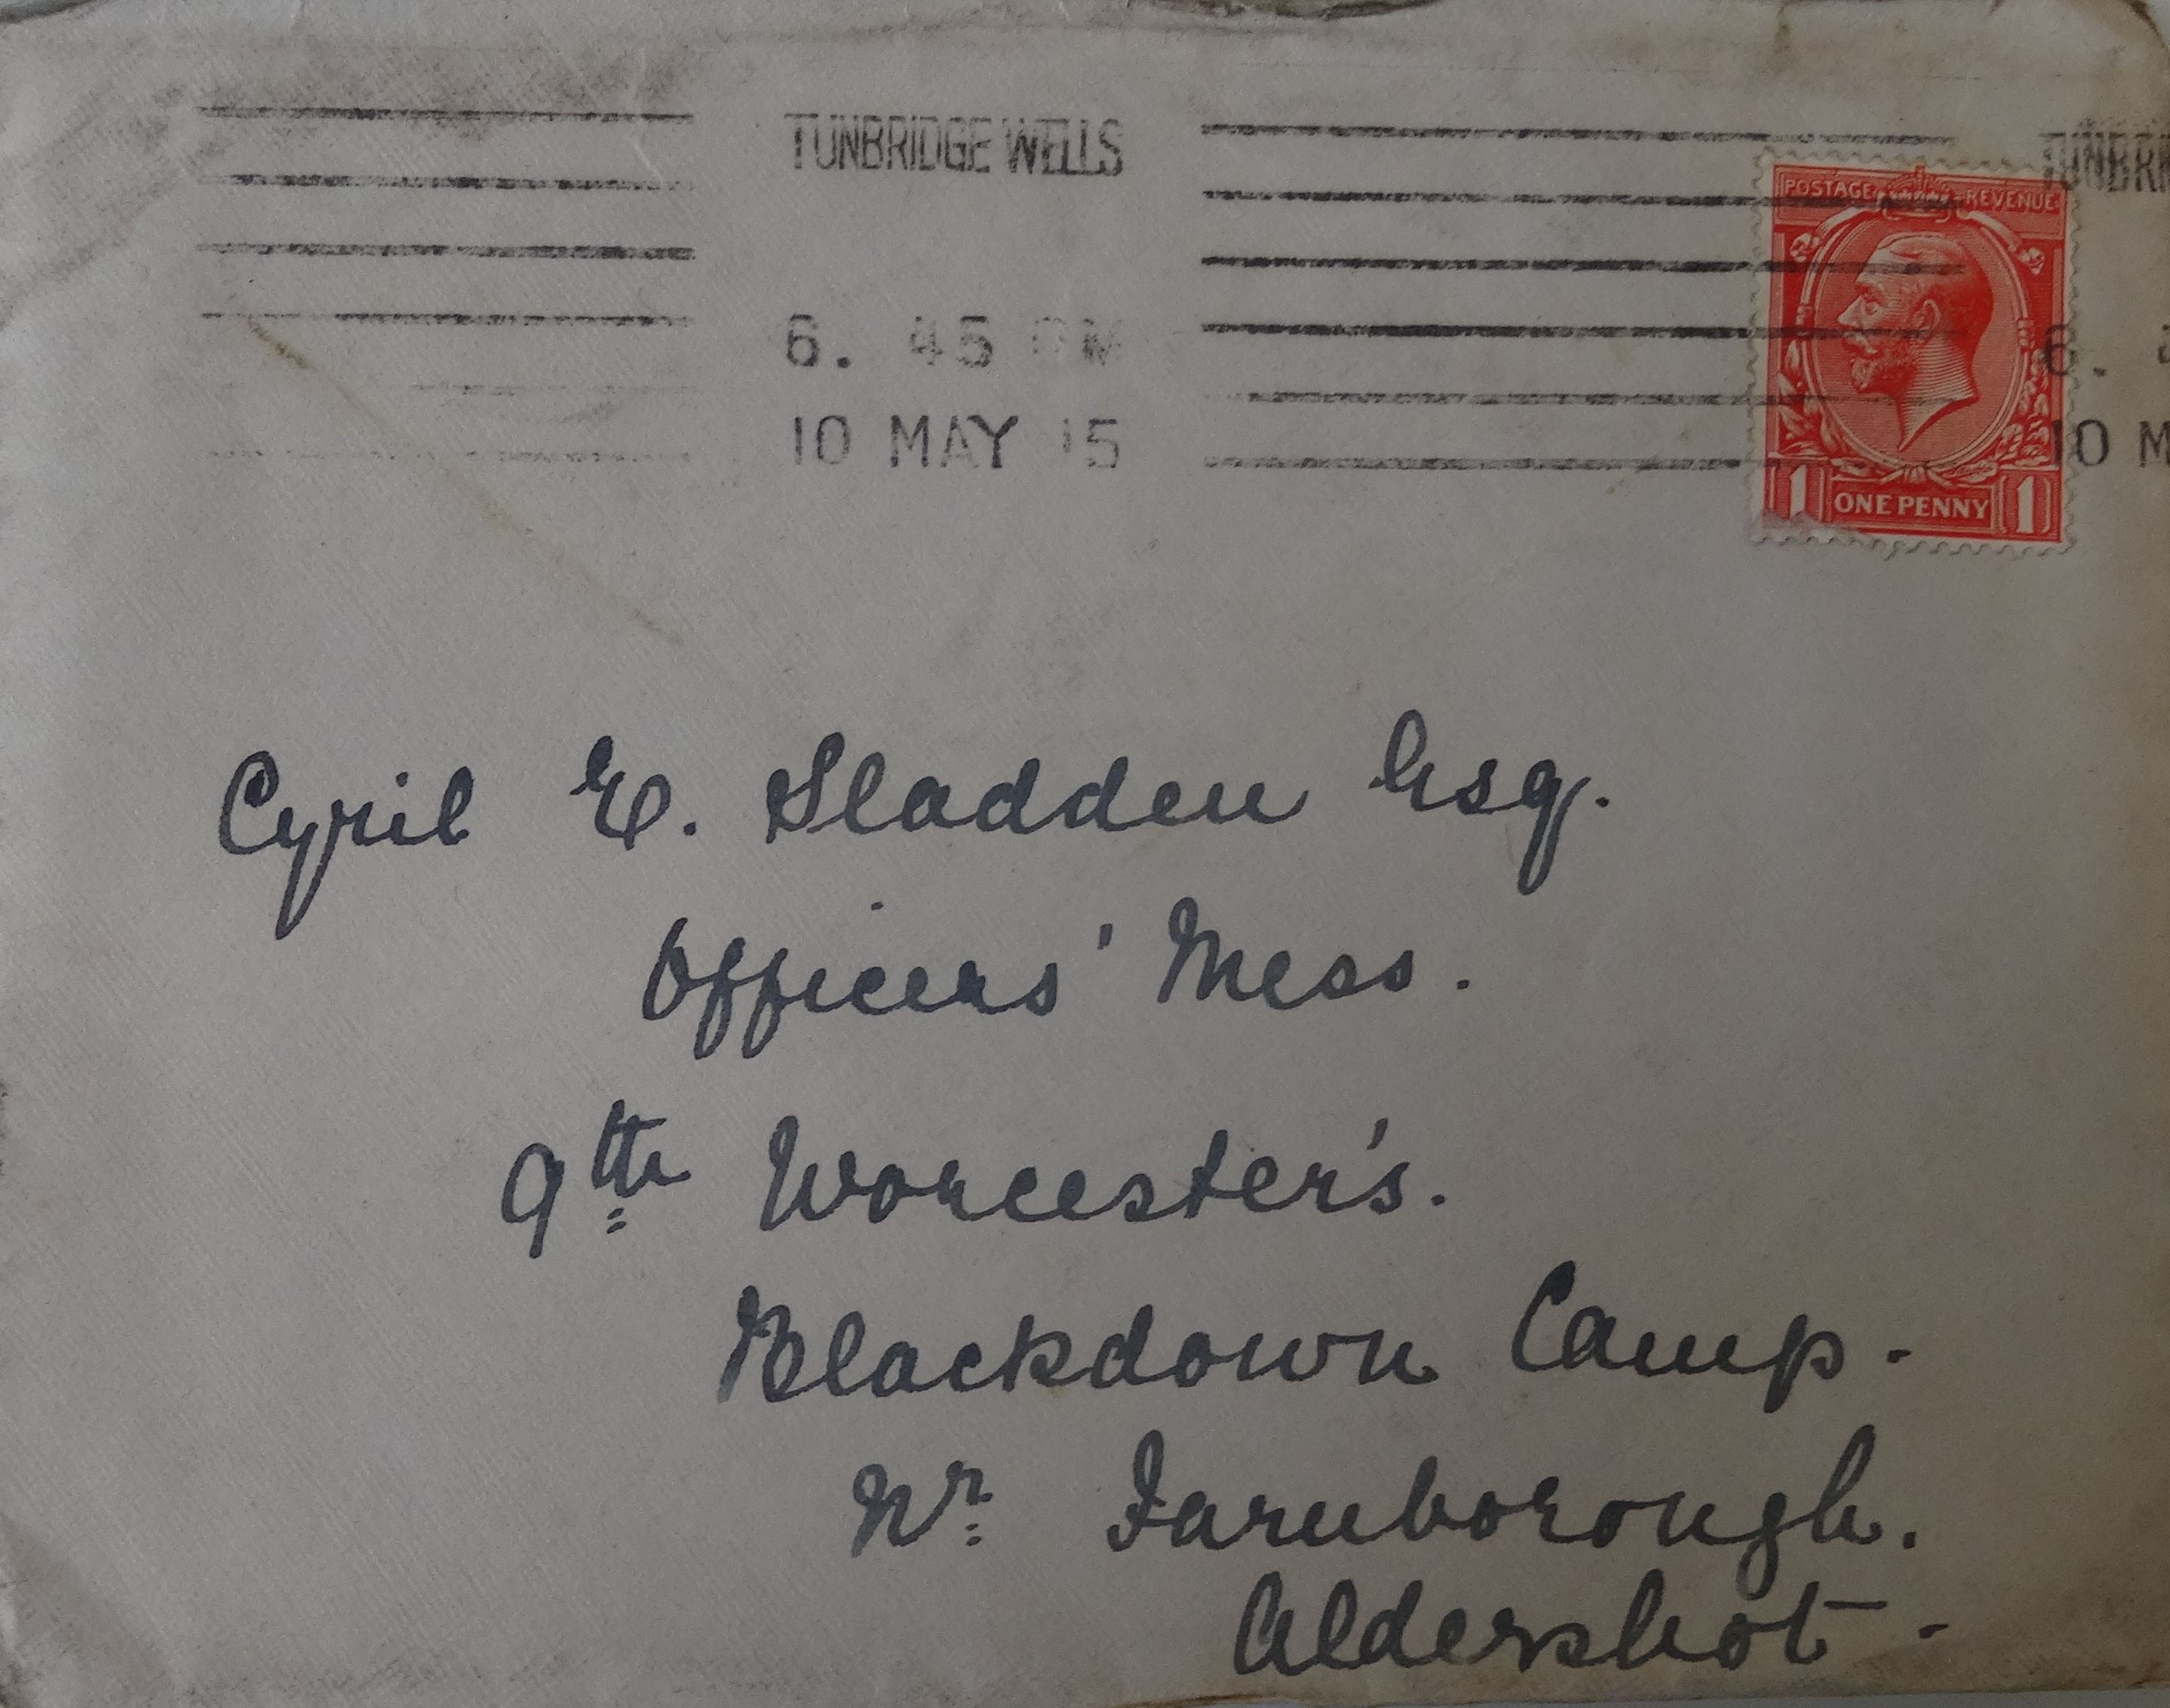 TUNBRIDGE WELLS
6. 45 PM
10 MAY 15
TUNBRI
6. 4
10 M
POSTAGE REVENUE
1 ONE PENNY 1
Cyril E. Sladden Esq.
Officers' Mess.
9th Worcester's.
Blackdown Camp.
Nr. Farnborough.
Aldershot.